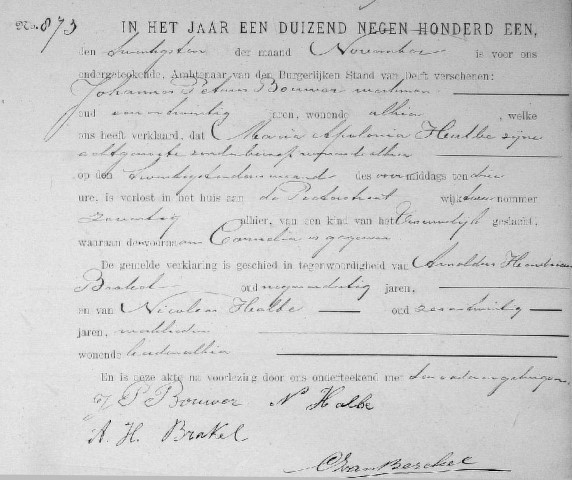 No. 873 IN HET JAAR EEN DUIZEND NEGEN HONDERD EEN,
den twintigsten der maand November is voor ons
ondergeteekende, Ambtenaar van den Burgerlijken Stand van Delft verschenen:
Johannes Petrus Bouwer werkman
oud jaren, wonende alhier, welke
ons heeft verklaard, dat Maria Apolonia Halbe zijne
echtgenoote zonder beroep wonende alhier
op den twintigsten dezer maand des voormiddags ten drie
ure, is verlost in het huis aan de Pieterstraat wijk nummer
alhier, van een kind van het Vrouwelijk geslacht,
waaraan de voornaam Cornelia is gegeven
De gemelde verklaring is geschied in tegenwoordigheid van Arnoldus Hendricus
Brakel oud jaren,
en van Nicolaas Halbe oud
jaren, werklieden
wonende beiden alhier
En is deze akte na voorlezing door ons onderteekend met
J P Bouwer N Halbe
A. H. Brakel